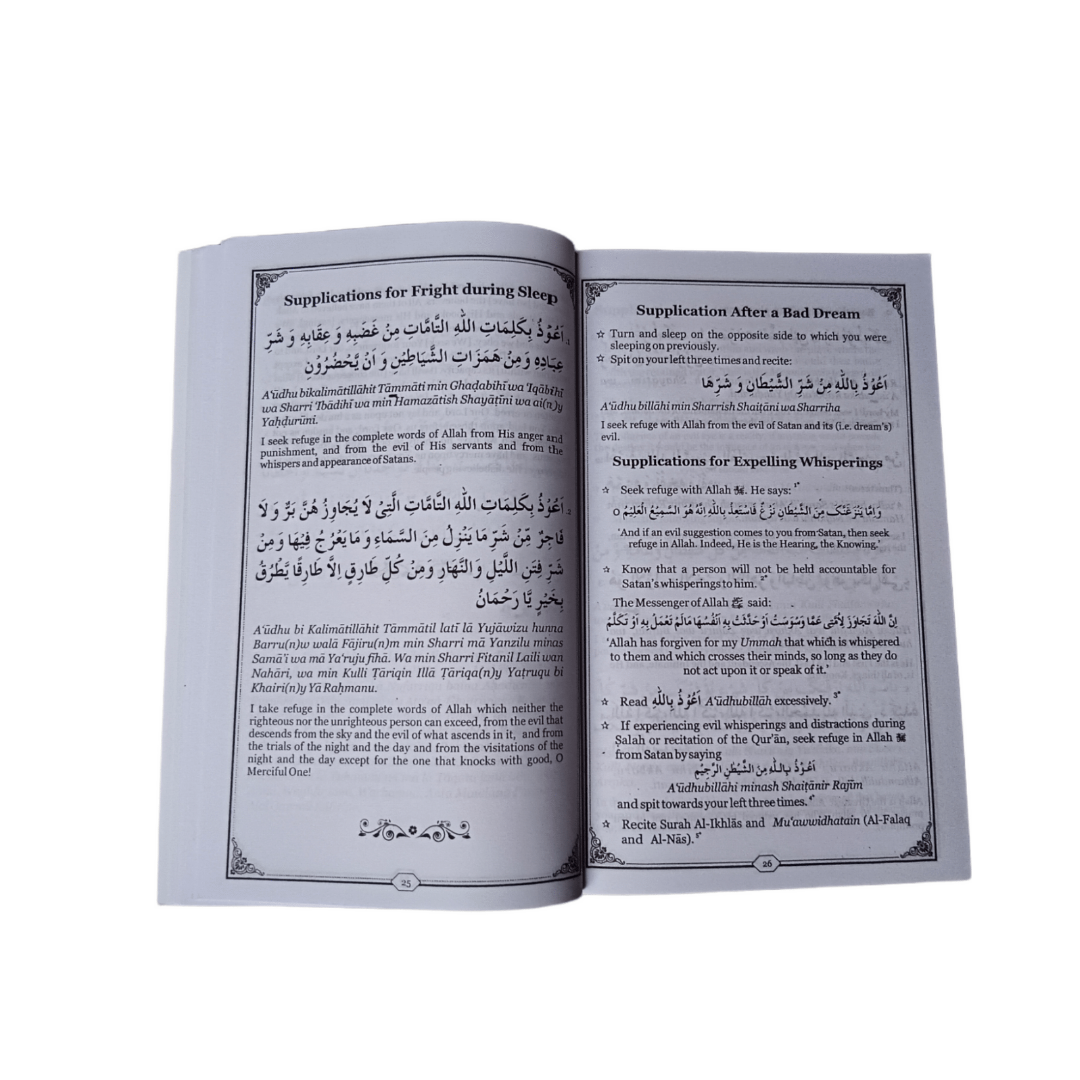 Supplications for Fright during Sleep
1. اَعُوْذُ بِكَلِمَاتِ اللّٰهِ التَّامَّاتِ مِنْ غَضَبِهٖ وَ عِقَابِهٖ وَ شَرِّ
عِبَادِهٖ وَ مِنْ هَمَزَاتِ الشَّيَاطِيْنِ وَ اَنْ يَّحْضُرُوْنِ
A'ūdhu bikalimātillāhit Tāmmāti min Ghaḍabihī wa 'Iqābihī
wa Sharri 'Ibādihī wa min Hamazātish Shayāṭīni wa ai(n)y
Yaḥḍurūni.
I seek refuge in the complete words of Allah from His anger and
punishment, and from the evil of His servants and from the
whispers and appearance of Satans.
2. اَعُوْذُ بِكَلِمَاتِ اللّٰهِ التَّامَّاتِ الَّتِيْ لَا يُجَاوِزُ هُنَّ بَرٌّ وَ لَا
فَاجِرٌ مِّنْ شَرِّ مَا يَنْزِلُ مِنَ السَّمَاءِ وَ مَا يَعْرُجُ فِيْهَا وَ مِنْ
شَرِّ فِتَنِ اللَّيْلِ وَ النَّهَارِ وَ مِنْ كُلِّ طَارِقٍ اِلَّا طَارِقًا يَّطْرُقُ
بِخَيْرٍ يَّا رَحْمَانُ
A'ūdhu bi Kalimātillāhit Tāmmātil latī lā Yujāwizu hunna
Barru(n)w walā Fājiru(n)m min Sharri mā Yanzilu minas
Samā'i wa mā Ya'ruju fīhā. Wa min Sharri Fitanil Laili wan
Nahāri, wa min Kulli Ṭāriqin Illā Ṭāriqa(n)y Yaṭruqu bi
Khairi(n)y Yā Raḥmanu.
I take refuge in the complete words of Allah which neither the
righteous nor the unrighteous person can exceed, from the evil that
descends from the sky and the evil of what ascends in it, and from
the trials of the night and the day and from the visitations of the
night and the day except for the one that knocks with good, O
Merciful One!
25
Supplication After a Bad Dream
☆ Turn and sleep on the opposite side to which you were
sleeping on previously.
☆ Spit on your left three times and recite:
اَعُوْذُ بِاللّٰهِ مِنْ شَرِّ الشَّيْطَانِ وَ شَرِّهَا
A'ūdhu billāhi min Sharrish Shaiṭāni wa Sharriha
I seek refuge with Allah from the evil of Satan and its (i.e. dream's)
evil.
Supplications for Expelling Whisperings
☆ Seek refuge with Allah ﷻ. He says: 1*
وَاِمَّا يَنْزَغَنَّكَ مِنَ الشَّيْطَانِ نَزْغٌ فَاسْتَعِذْ بِاللّٰهِ اِنَّهُ هُوَ السَّمِيْعُ الْعَلِيْمُ ○
'And if an evil suggestion comes to you from Satan, then seek
refuge in Allah. Indeed, He is the Hearing, the Knowing.'
☆ Know that a person will not be held accountable for
Satan's whisperings to him. 2*
The Messenger of Allah ﷺ said:
اِنَّ اللّٰهَ تَجَاوَزَ لِاُمَّتِيْ عَمَّا وَسْوَسَتْ اَوْ حَدَّثَتْ بِهٖ اَنْفُسَهَا مَالَمْ تَعْمَلْ بِهٖ اَوْ تَكَلَّمْ
'Allah has forgiven for my Ummah that which is whispered
to them and which crosses their minds, so long as they do
not act upon it or speak of it.'
☆ Read اَعُوْذُ بِاللّٰهِ A'ūdhubillāh excessively. 3*
☆ If experiencing evil whisperings and distractions during
Ṣalah or recitation of the Qur'ān, seek refuge in Allah ﷻ
from Satan by saying
اَعُوْذُ بِاللّٰهِ مِنَ الشَّيْطٰنِ الرَّجِيْمِ
A'ūdhubillāhi minash Shaiṭānir Rajīm
and spit towards your left three times. 4*
☆ Recite Surah Al-Ikhlās and Mu'awwidhatain (Al-Falaq
and Al-Nās). 5*
26